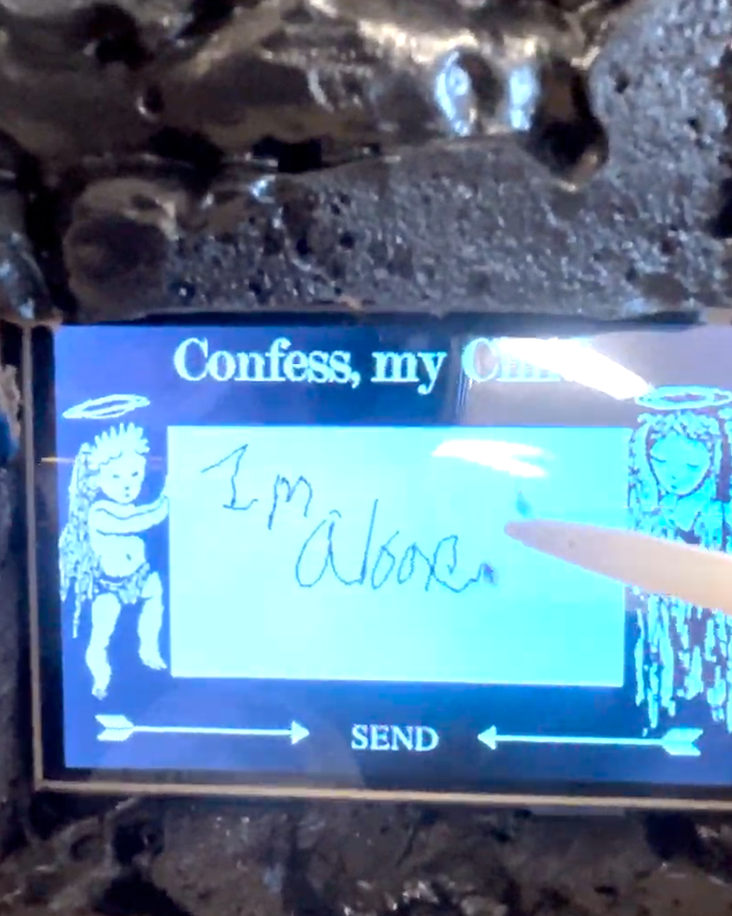 Confess, my Child
I m
alone.
SEND